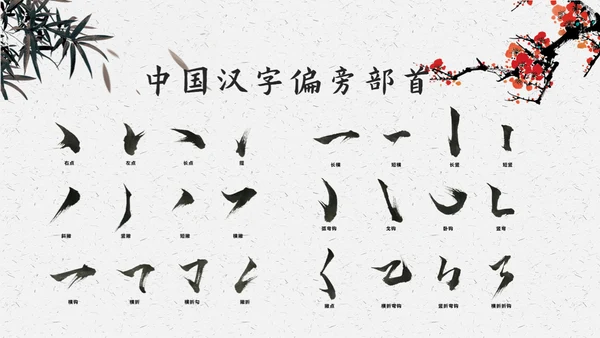 中国汉字偏旁部首
右点 左点 长点 提 长横 短横 长竖 短竖
斜撇 竖撇 短撇 横撇 弧弯钩 戈钩 卧钩 竖弯
横钩 横折 横折勾 撇折 撇点 横折弯钩 竖折弯钩 横折折钩